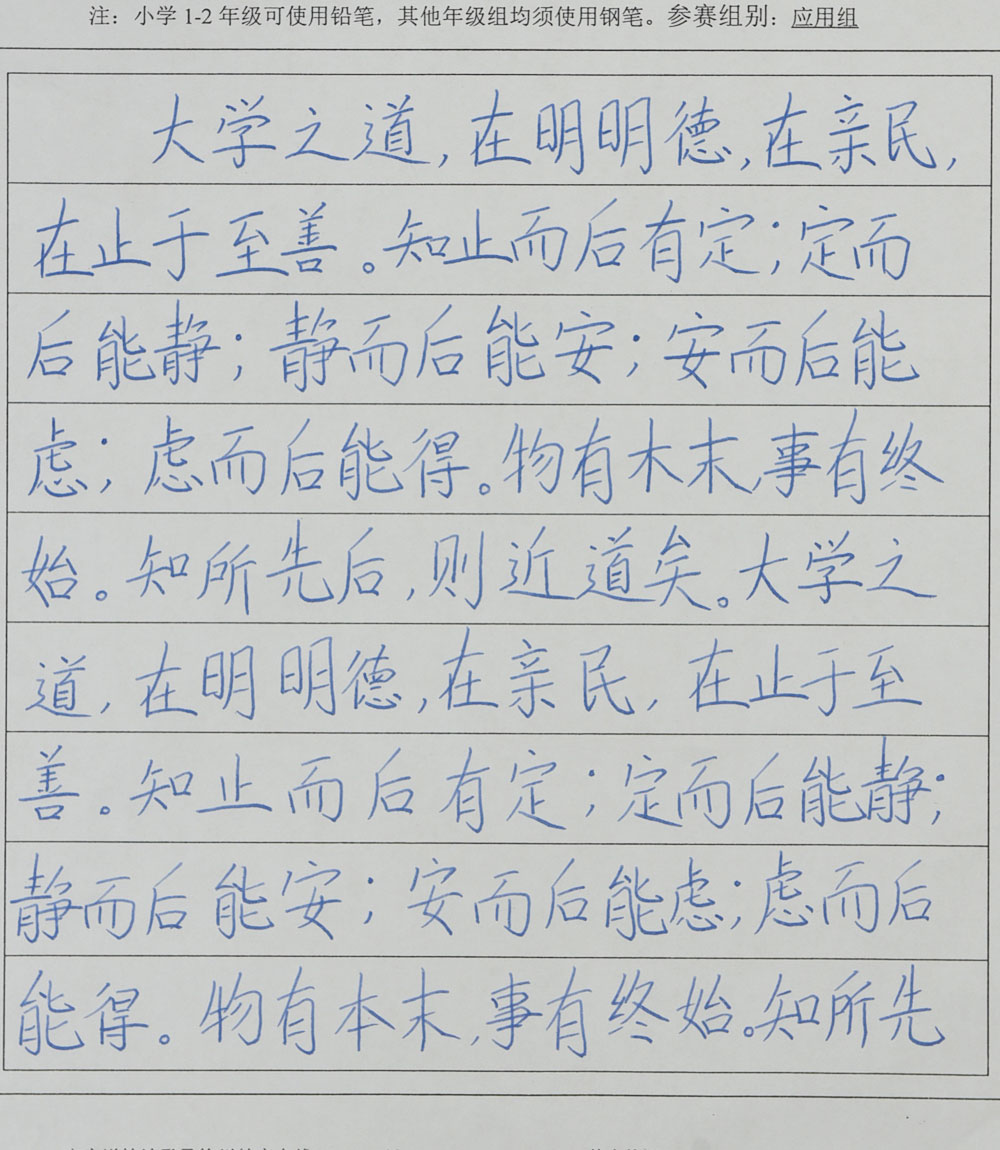 注：小学 1-2 年级可使用铅笔，其他年级组均须使用钢笔。参赛组别：应用组
大学之道，在明明德，在亲民，
在止于至善。知止而后有定；定而
后能静；静而后能安；安而后能
虑；虑而后能得。物有木末，事有终
始。知所先后，则近道矣。大学之
道，在明明德，在亲民，在止于至
善。知止而后有定；定而后能静；
静而后能安；安而后能虑；虑而后
能得。物有本末，事有终始。知所先